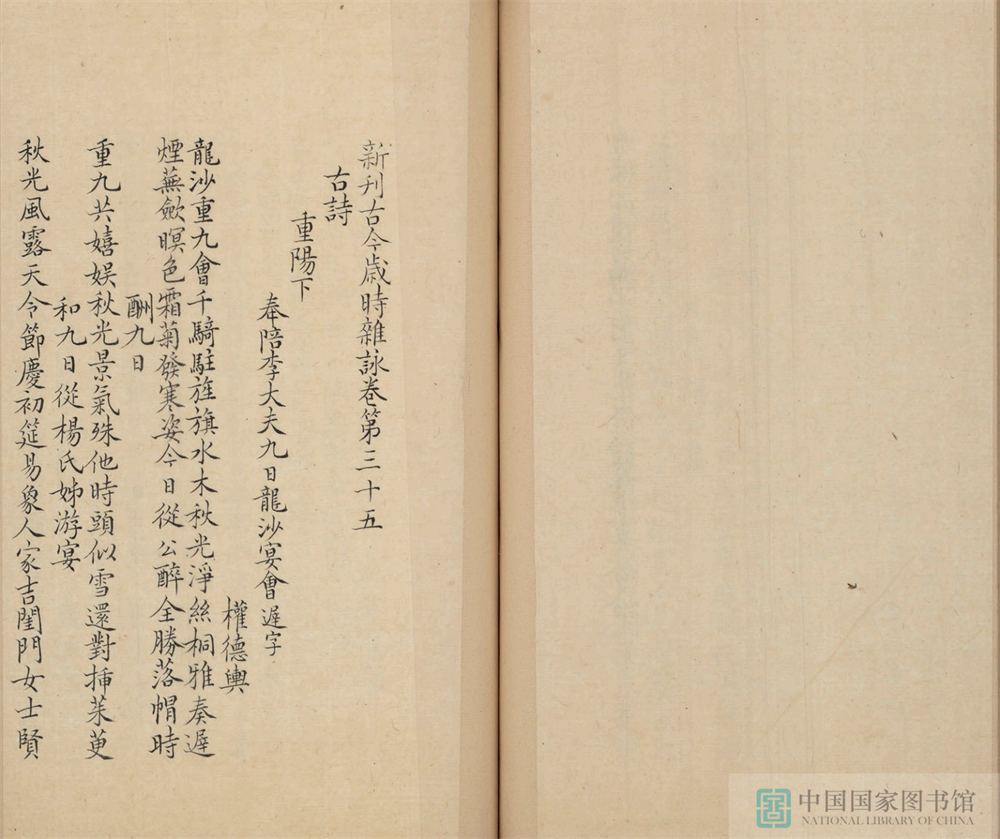 新刊古今歳時雜詠卷第三十五
古詩
重陽下
奉陪李大夫九日龍沙宴會遲字
權德輿
龍沙重九會千騎駐旌旗水木秋光淨絲桐雅奏遲
煙蕪歛暝色霜菊發寒姿今日從公醉全勝落帽時
酬九日
重九共嬉娛秋光景氣殊他時頭似雪還對揷茱萸
和九日從楊氏姊游宴
秋光風露天令節慶初筵易象人家吉閨門女士賢
中国国家图书馆
NATIONAL LIBRARY OF CHINA